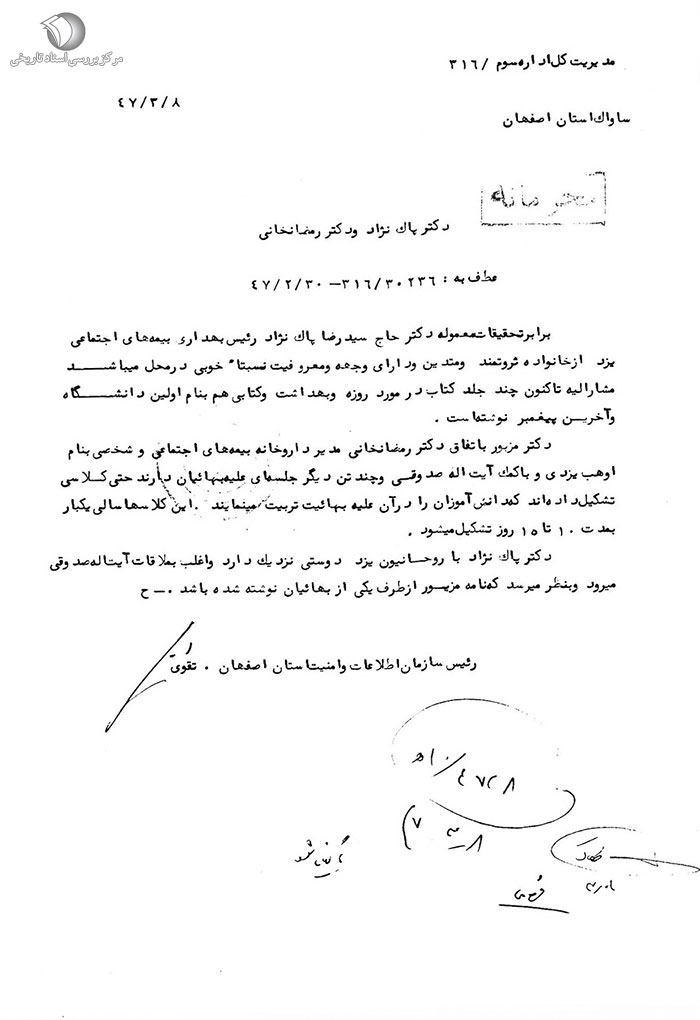 مرکز بررسی اسناد تاریخی
مدیریت کل اداره سوم / ۳۱۶
۴۷/۳/۸
ساواک استان اصفهان
محرمانه
دکتر پاک نژاد ودکتر رمضانخانی
عطف به : ۳۱۶/۳۰۲۳۶ – ۴۷/۲/۳۰
برابر تحقیقات معموله دکتر حاج سید رضا پاک نژاد رئیس بهداری بیمه‌های اجتماعی
یزد از خانواده ثروتمند ومتدین ودارای وجهه ومعروفیت نسبتاً خوبی در محل میباشد
مشارالیه تاکنون چند جلد کتاب در مورد روزه وبهداشت وکتابی هم بنام اولین دانشگاه
وآخرین پیغمبر نوشته است .
دکتر مزبور با تفاق دکتر رمضانخانی مدیر داروخانه بیمه‌های اجتماعی و شخصی بنام
اوهب یزدی و با کمک آیت اله صدوقی وچند تن دیگر جلسه‌ای علیه بهائیان دارند حتی کلاسی
تشکیل داده‌اند که دانش آموزان را در آن علیه بهائیت تربیت مینمایند . این کلاسها سالی یکبار
بمدت ۱۰ تا ۱۵ روز تشکیل میشود .
دکتر پاک نژاد با روحانیون یزد دوستی نزدیک دارد واغلب بملاقات آیت اله صدوقی
میرود وبنظر میرسد که نامه مزبور از طرف یکی از بهائیان نوشته شده باشد ۰– ح
رئیس سازمان اطلاعات وامنیت استان اصفهان . تقوی
بایگانی شود